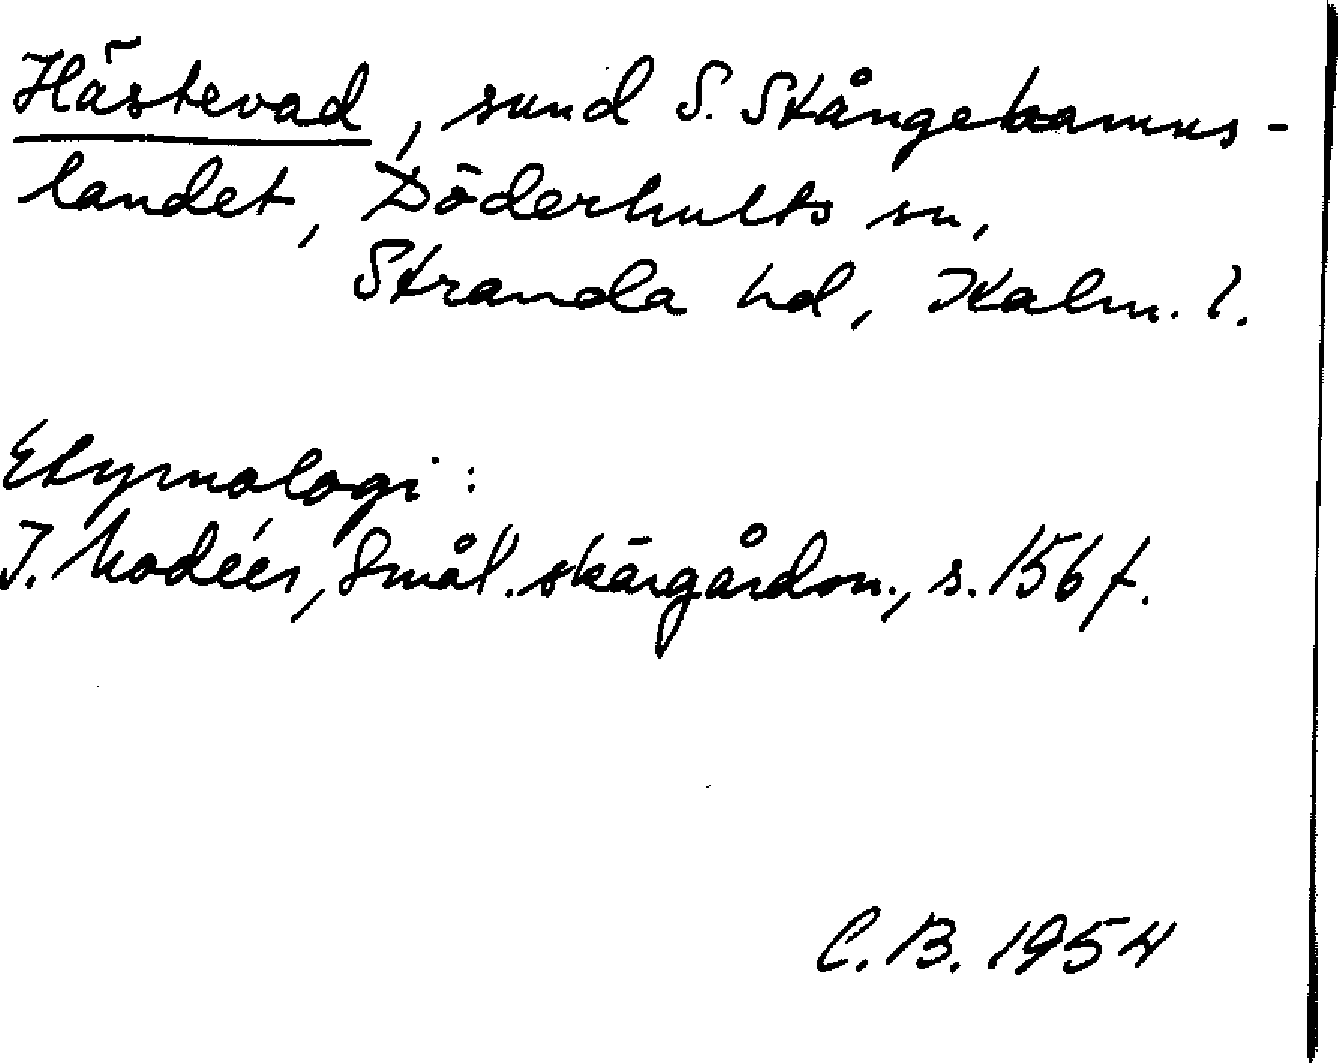 Hästevad, sund S. Stångehamns-
landet, Döderhults sn,
Stranda hd, Kalm. l.
Etymologi:
I. Modéer, Smål. skärgårdsn., s. 156 f.
C.B. 1954